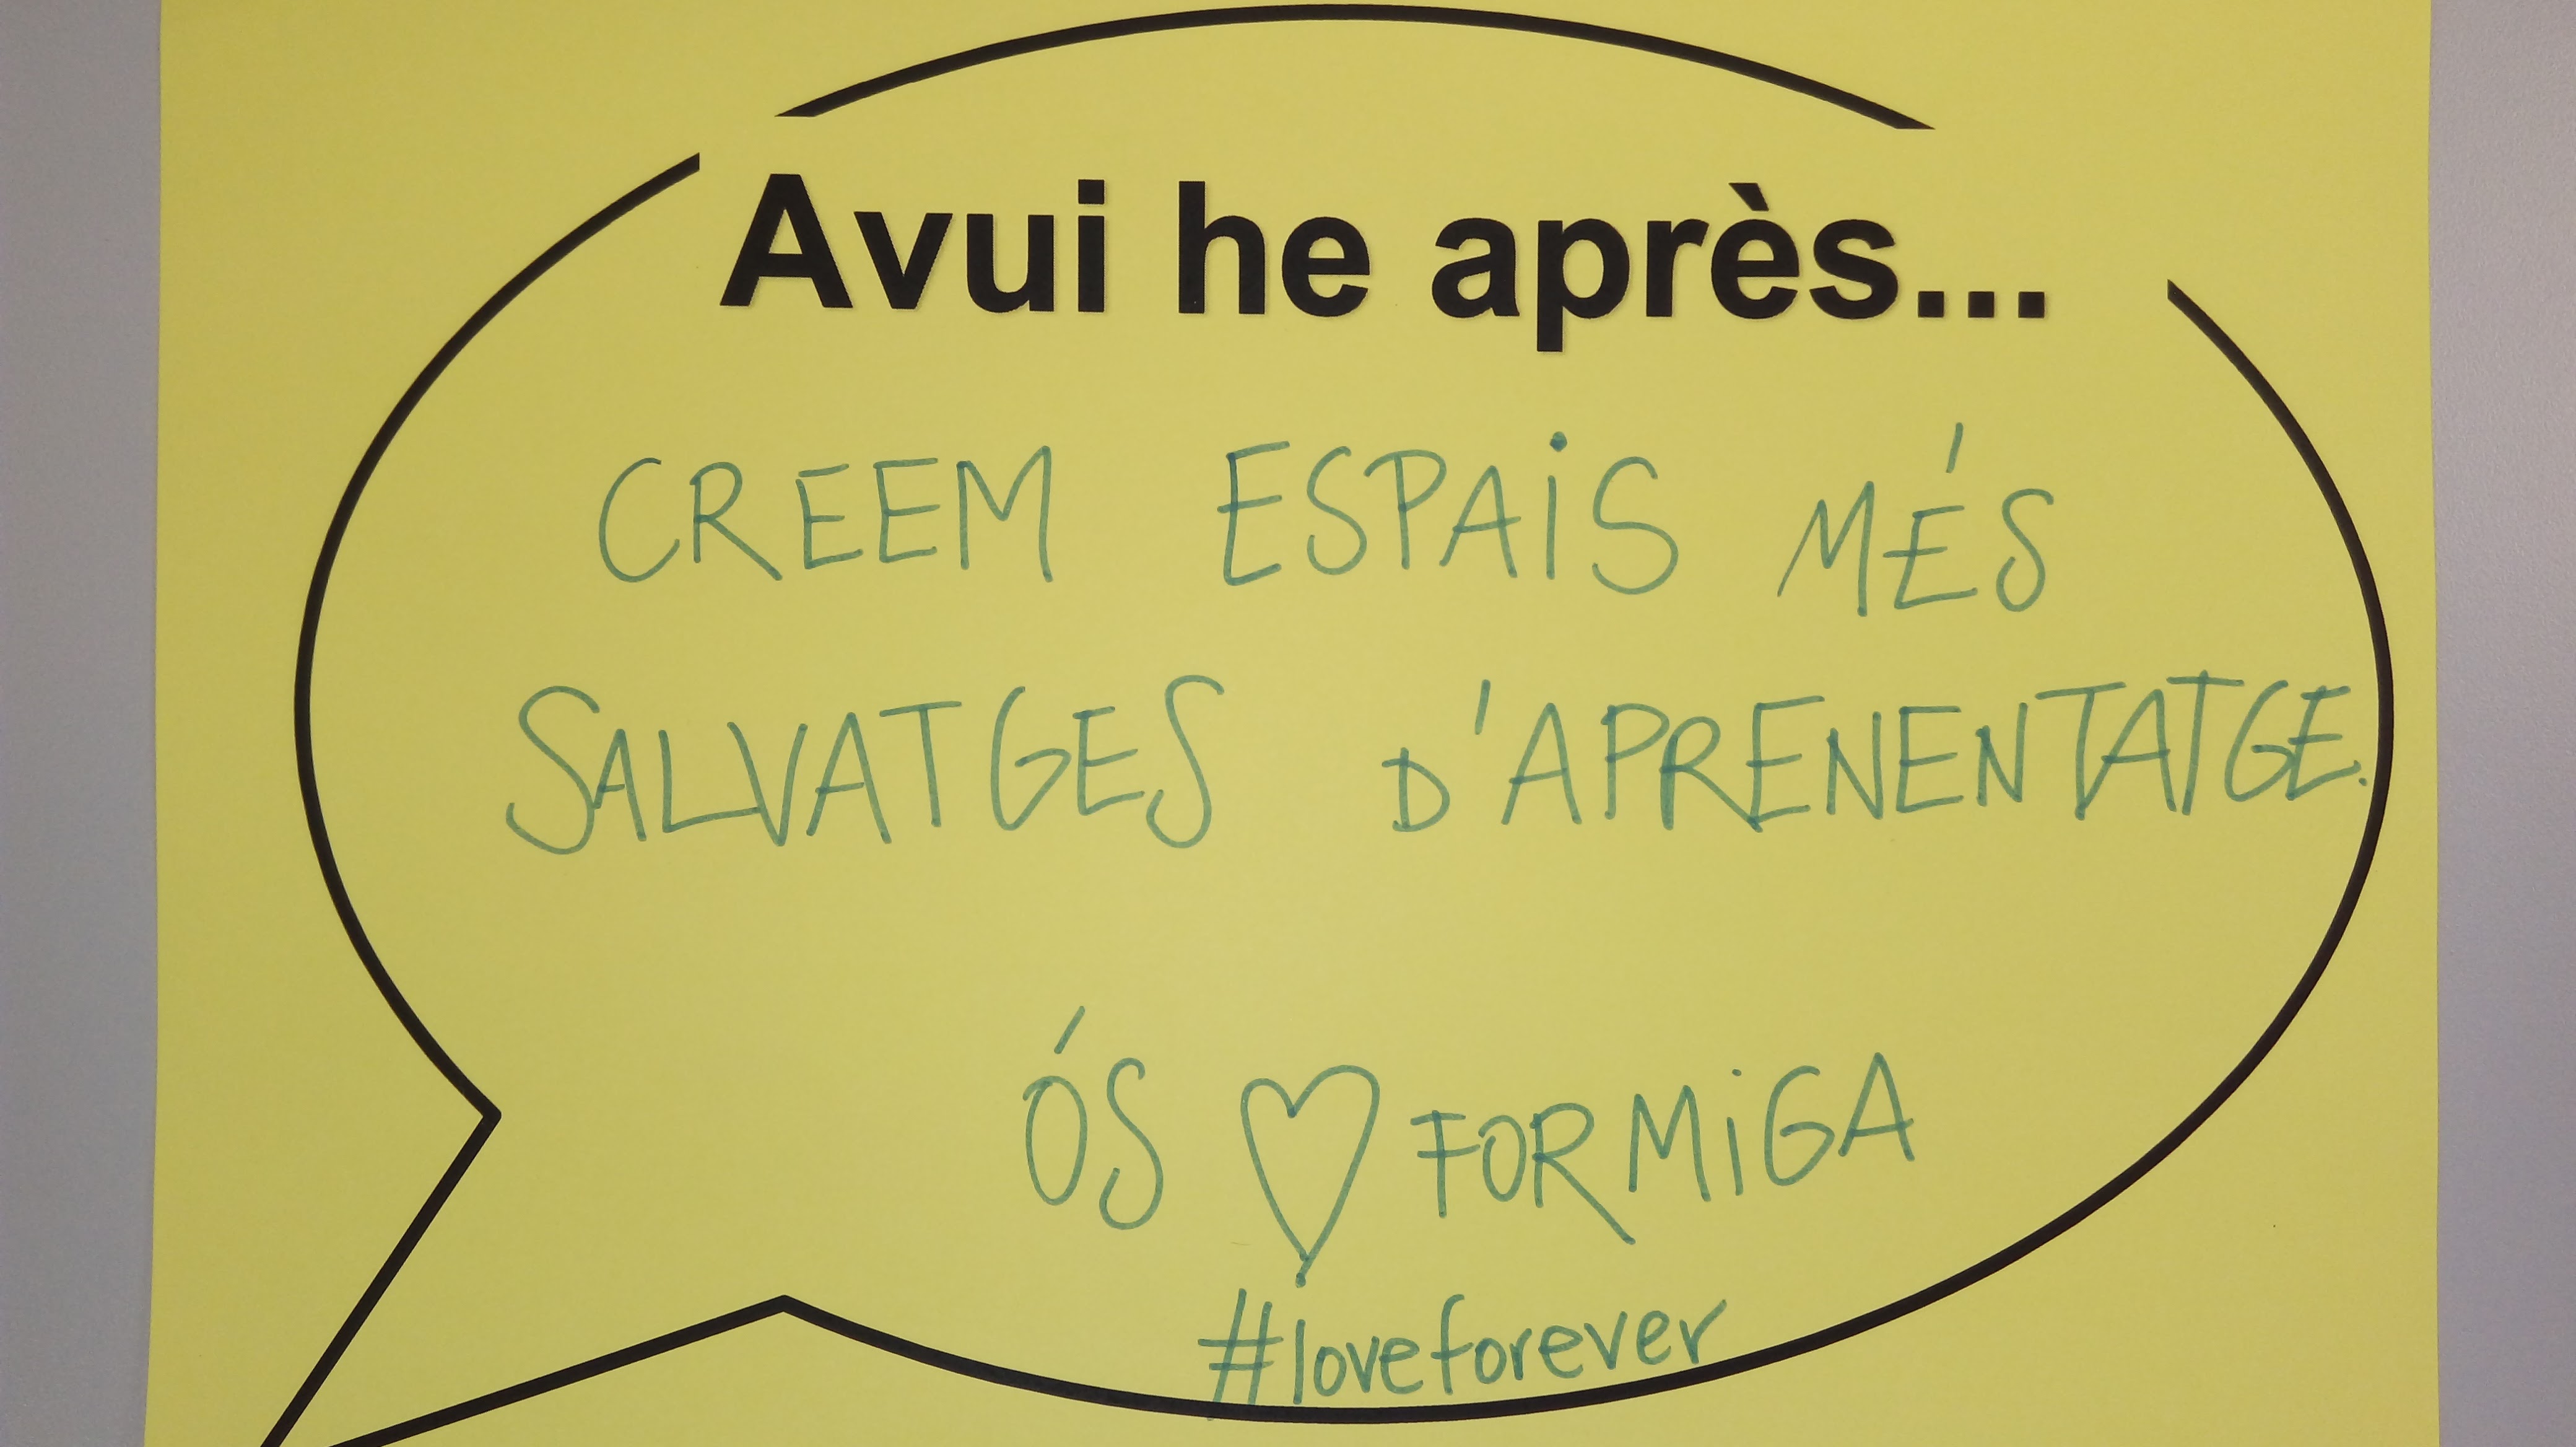 Avui he après...
CREEM ESPAiS MÉS
SALVATGES D'APRENENTATGE.
ÓS ♡ FORMiGA
#loveforever